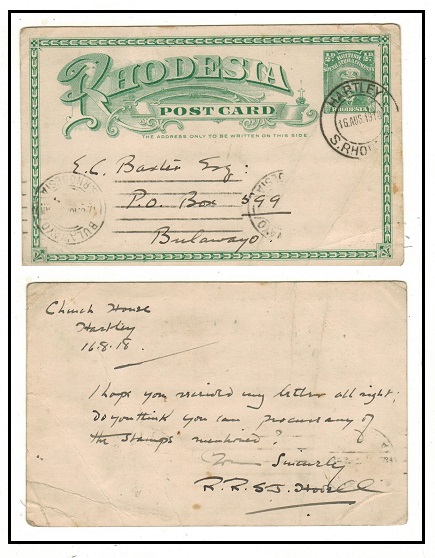 RHODESIA
POST CARD
THE ADDRESS ONLY TO BE WRITTEN ON THIS SIDE
½D ½D
BRITISH
SOUTH AFRICA COMPANY
RHODESIA
HARTLEY
16 AUG 191
S. RHOD
E.C. Baxter Esq:
P.O. Box 599
Bulawayo.
BULAWAYO
Church House
Hartley
16.8.18.
I hope you received my letter all right.
Do you think you can procure any of
the stamps mentioned?
Yours Sincerely